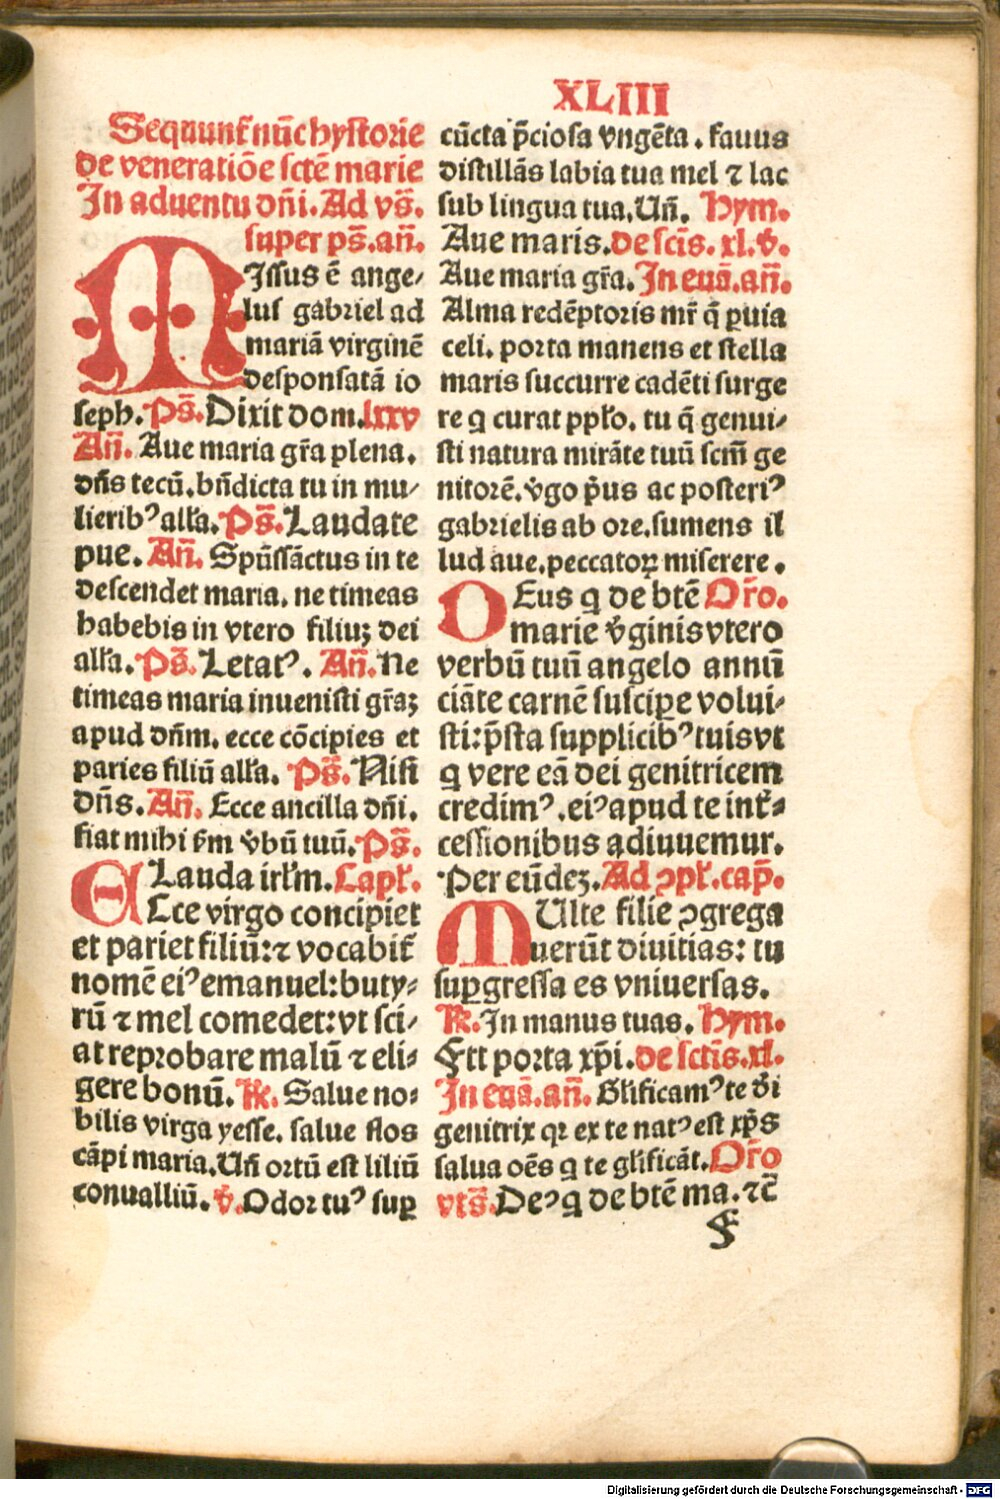 XLIII
Sequunt᷑ nūc hystorie
de veneratiōe sctē marie
In aduentu dn̄i. Ad vs̄.
super ps̄. an̄.
MIssus ē ange⸗
lus gabriel ad
mariā virginē
desponsatā io
seph. Ps̄. Dixit dom. lxxv
An̄. Aue maria gr̄a plena.
dn̄s tecū. bn̄dicta tu in mu⸗
lieribꝰ alľa. Ps̄. Laudate
pue. An̄. Spūssāctus in te
descendet maria. ne timeas
habebis in vtero filiuꝫ dei
alľa. Ps̄. Letatꝰ. An̄. Ne
timeas maria inuenisti gr̄aꝫ
apud dn̄m. ecce cōcipies et
paries filiū alľa. Ps̄. Nisi
dn̄s. An̄. Ecce ancilla dn̄i.
fiat mihi s̄m v̄bū tuū. Ps̄.
Lauda irľm. Capľ.
ECce virgo concipiet
et pariet filiū: ⁊ vocabit᷑
nomē eiꝰ emanuel: buty⸗
rū ⁊ mel comedet: vt sci⸗
at reprobare malū ⁊ eli⸗
gere bonū. R. Salue no⸗
bilis virga yesse. salue flos
cāpi maria. Un̄ ortū est liliū
conualliū. v̄. Odor tuꝰ suꝑ
cūcta p̄ciosa vngēta. fauus
distillās labia tua mel ⁊ lac
sub lingua tua. Un̄. Hym.
Aue maris. de scīs. xl. v̄.
Aue maria gr̄a. In euā. an̄.
Alma redēptoris mr̄ q̄ ꝑuia
celi. porta manens et stella
maris succurre cadēti surge
re q curat ppľo. tu q̄ genui⸗
sti natura mirāte tuū scm̄ ge
nitorē. v̄go p̄us ac posteriꝰ
gabrielis ab ore. sumens il
lud aue. peccatoꝝ miserere.
DEus q de btē Or̄o.
marie v̄ginis vtero
verbū tuū angelo annū
ciāte carnē suscipe volui⸗
sti: p̄sta supplicibꝰ tuis vt
q vere eā dei genitricem
credimꝰ. eiꝰ apud te int̄⸗
cessionibus adiuuemur.
Per eūdeꝫ. Ad ꝯpľ. cap̄.
MUlte filie ꝯgrega
uerūt diuitias: tu
suꝑgressa es vniuersas.
R. In manus tuas. Hym.
Fit porta xp̄i. de sctīs. xl.
In euā. an̄. Glīficamꝰ te d̄i
genitrix qꝛ ex te natꝰ est xp̄s
salua oēs q te glīficāt. Or̄o
vts̄. Deꝰ q de btē ma. ⁊c̄
F
Digitalisierung gefördert durch die Deutsche Forschungsgemeinschaft - DFG